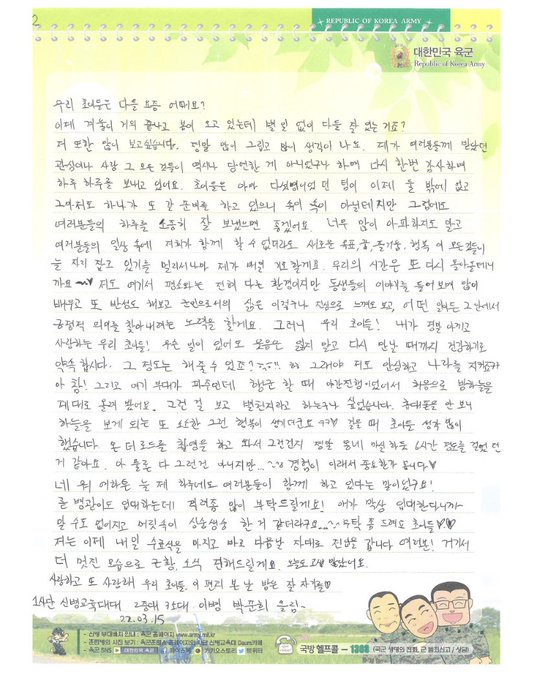 2
REPUBLIC OF KOREA ARMY
대한민국 육군
Republic of Korea Army
우리 초이들은 다들 요즘 어때요?
이제 겨울이 거의 끝나고 봄이 오고 있는데 별 일 없이 다들 잘 있는 거죠?
저 또한 많이 보고싶습니다. 정말 많이 그립고 많이 생각이 나요. 제가 여러분들께 받았던
관심이나 사랑 그 모든 것들이 역시나 당연한 게 아니었구나 하며 다시 한번 감사하며
하루 하루를 보내고 있어요. 초이들은 아마 다섯명이었던 텀이 이제 둘 밖에 없고
그마저도 하나가 또 갈 준비를 하고 있으니 속이 속이 아닐테지만 그럼에도
여러분들의 하루를 소중히 잘 보냈으면 좋겠어요. 너무 많이 아파하지도 말고
여러분들의 일상 속에 저희가 함께 할 수 없더라도 새로운 목표, 꿈, 즐거움, 행복 이 모든 것들이
늘 자리 잡고 있기를 멀리서나마 제가 매일 기도할게요. 우리의 시간은 또 다시 돌아올테니
까요 ~♥ 저도 여기서 평소와는 전혀 다른 환경이지만 동생들의 이야기를 들어보며 많이
배우고 또 반성도 해보고 군인으로서의 삶은 이렇구나 진심으로 느껴도 보고, 어떤 일이든 그 안에서
긍정적 의미를 찾아내려는 노력을 할게요. 그러니 우리 초이들! 내가 정말 아끼고
사랑하는 우리 초이들! 무슨 일이 있어도 웃음은 잃지 말고 다시 만날 때까지 건강하기로
약속합시다. 그 정도는 해줄 수 있죠? 그래야 저도 안심하고 나라를 지킬꺼라
아 참! 그리고 여기 부대가 파주인데 행군 할 때 야간진행이었어서 처음으로 밤하늘을
제대로 올려 봤어요. 그런 걸 보고 별천지라고 하는구나 싶었습니다. 휴대폰을 안 보니
하늘을 보게 되는 또 소소한 그런 행복이 생기더군요 ㅋㅋ♥ 걸을 때 초이들 생각 많이
했습니다. 온 더 로드를 촬영을 하고 와서 그런건지 정말 동네 마실 하듯 6시간 정도를 걸었던
거 같아요. 아 물론 다 그런건 아니지만...~ 경험이 이래서 중요한가 봅니다♥
네 뭐 어쨌든 늘 제 하루에도 여러분들이 함께 하고 있다는 말이었구요!
훈 병관이도 입대하는데 격려좀 많이 부탁드릴게요! 애가 막상 입대한다니까
말 수도 없어지고 머릿속이 싱숭생숭 한 거 같더라구요... 부탁 좀 드려요 초이들♥♥
저는 이제 내일 수료식을 마치고 바로 다음날 자대로 전입을 갑니다 여러분! 거기서
더 멋진 모습으로 근황, 소식 전해드릴게요. 오늘도 고생 많았어요.
사랑하고 또 사랑해 우리 초이들. 이 편지 본 날 밤은 잘 자기를♥
1사단 신병교육대대 2중대 이병 박준희 올림-
22.03.15
- 신병 부대배치 안내 : 육군 홈페이지 www.army.mil.kr
- 육군 SNS 대한민국 육군 페이스북 카카오스토리 트위터
국방 헬프콜 - 1303 (국군 생명의 전화, 군 범죄신고 / 상담)